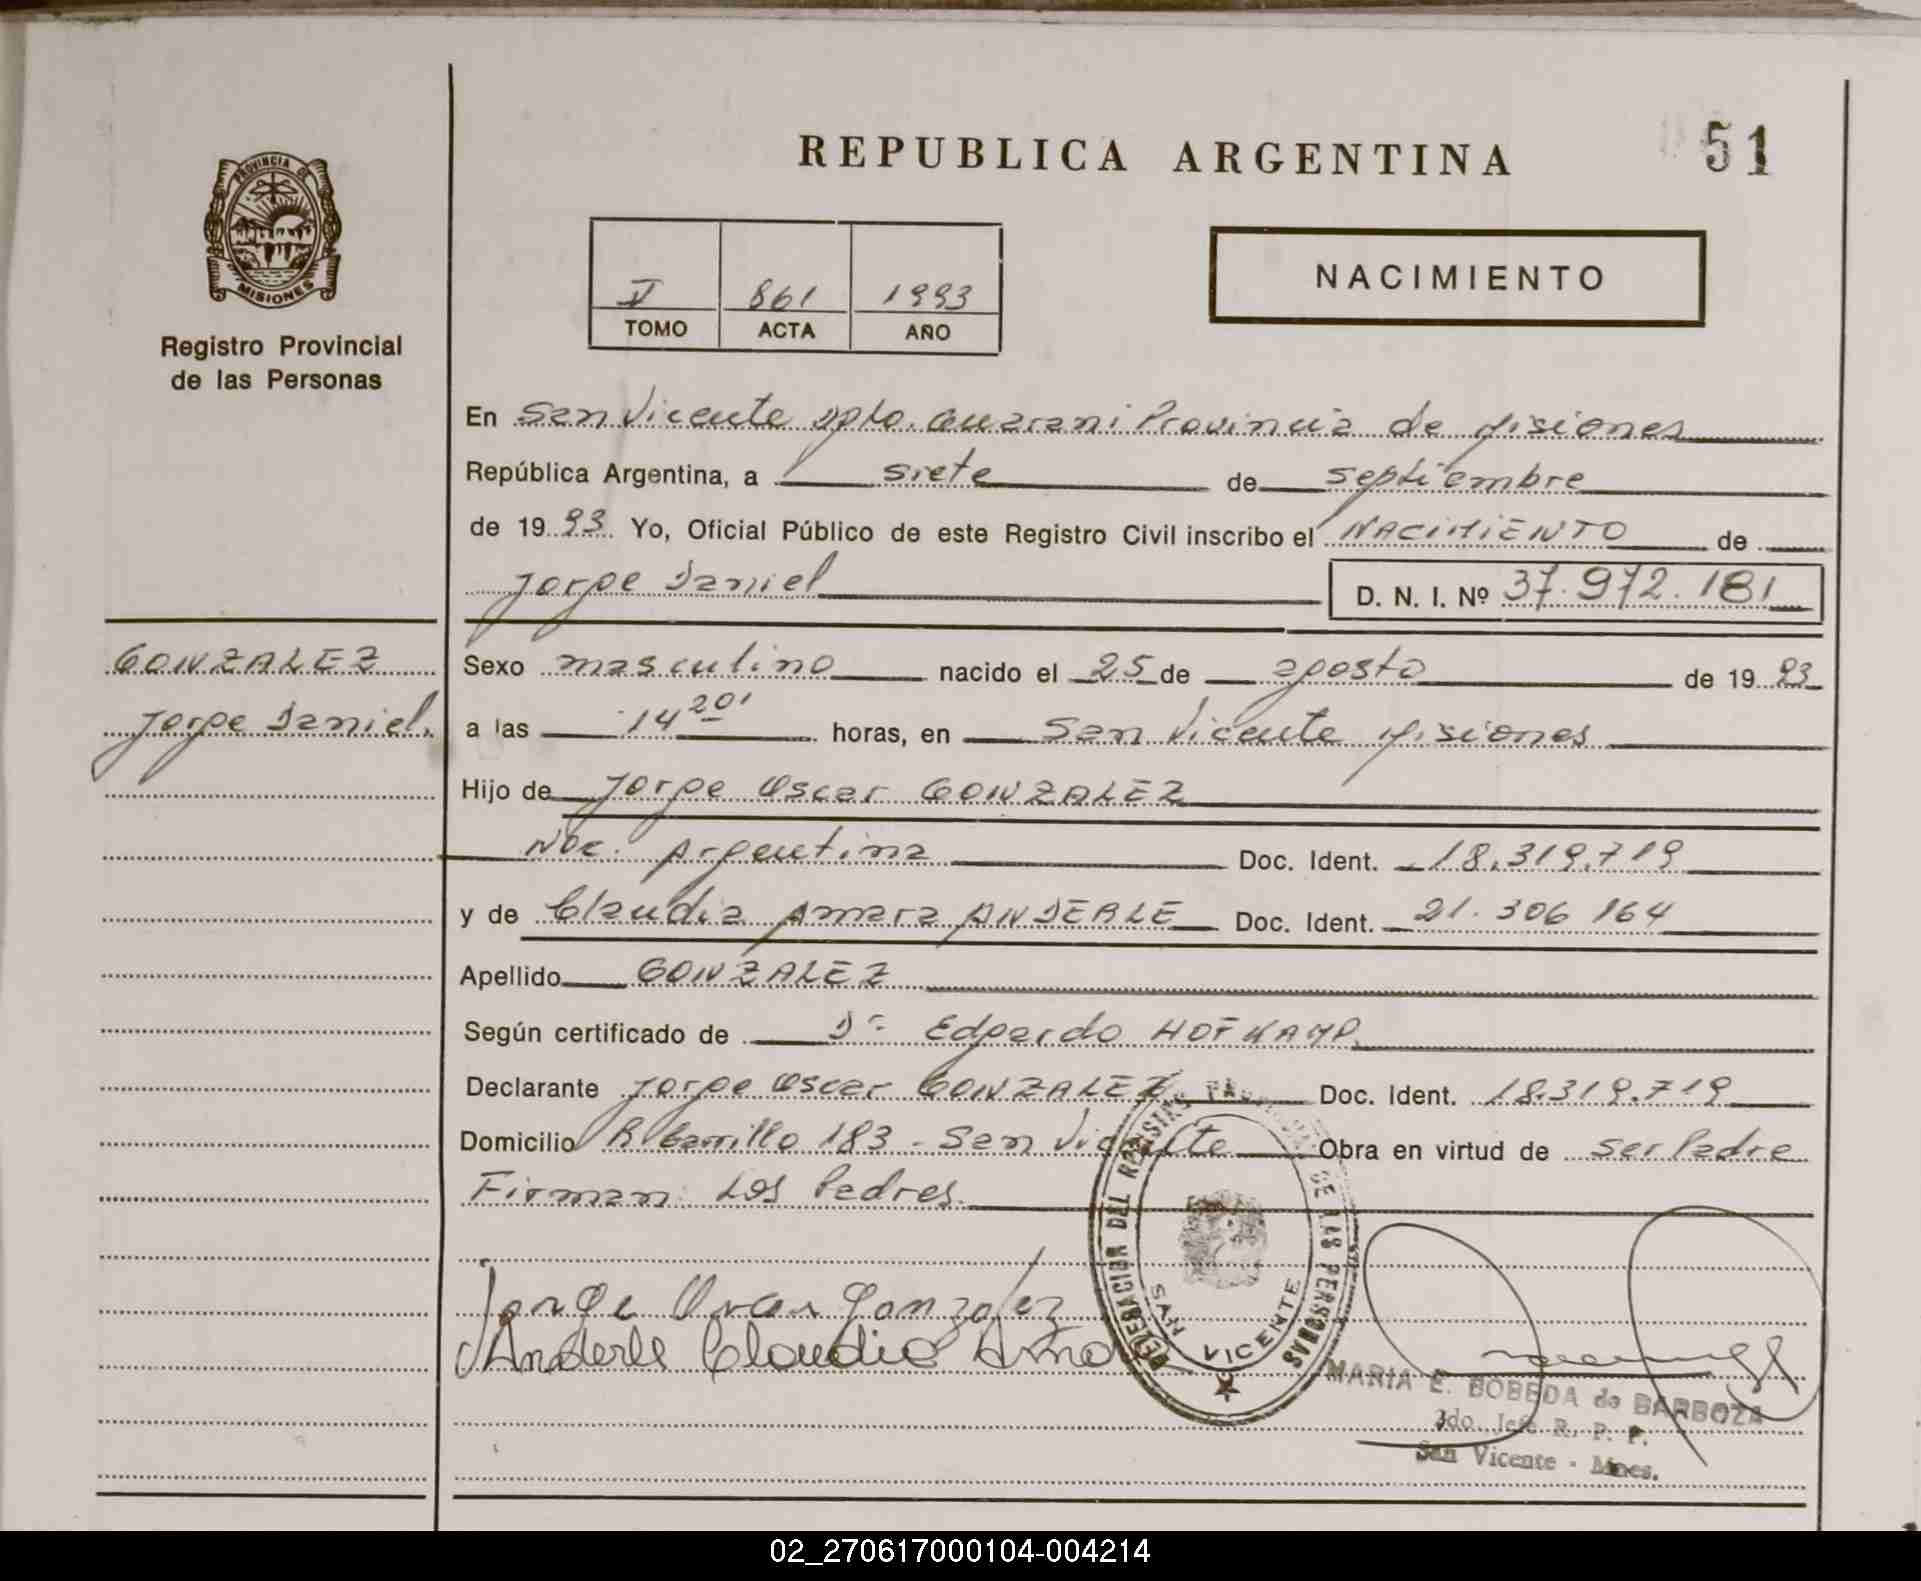 REPUBLICA ARGENTINA
51
PROVINCIA DE
MISIONES
Registro Provincial
de las Personas
V 861 1993
TOMO ACTA AÑO
NACIMIENTO
En San Vicente Dpto. Guarani Provincia de Misiones
República Argentina, a siete de septiembre
de 1993. Yo, Oficial Público de este Registro Civil inscribo el NACIMIENTO de
Jorge Daniel D. N. I. Nº 37.972.181
GONZALEZ
Jorge Daniel.
Sexo masculino nacido el 25 de agosto de 1993
a las 14 20' horas, en San Vicente Misiones
Hijo de Jorge Oscar GONZALEZ
Nac. Argentina Doc. Ident. 18.319.719
y de Claudia Amara ANDERLE Doc. Ident. 21.306 164
Apellido GONZALEZ
Según certificado de Dr Edgardo HOFKAMP.
Declarante Jorge Oscar GONZALEZ Doc. Ident. 18.319.719
Domicilio R. Carrillo 183 - San Vicente Obra en virtud de ser Padre
Firman: Los Padres.
Jorge Oscar Gonzalez
Anderle Claudia
SAN VICENTE
MARIA E. BOBEDA de BARBOZA
2do. Jefe R. P. P.
San Vicente - Mnes.
02_270617000104-004214